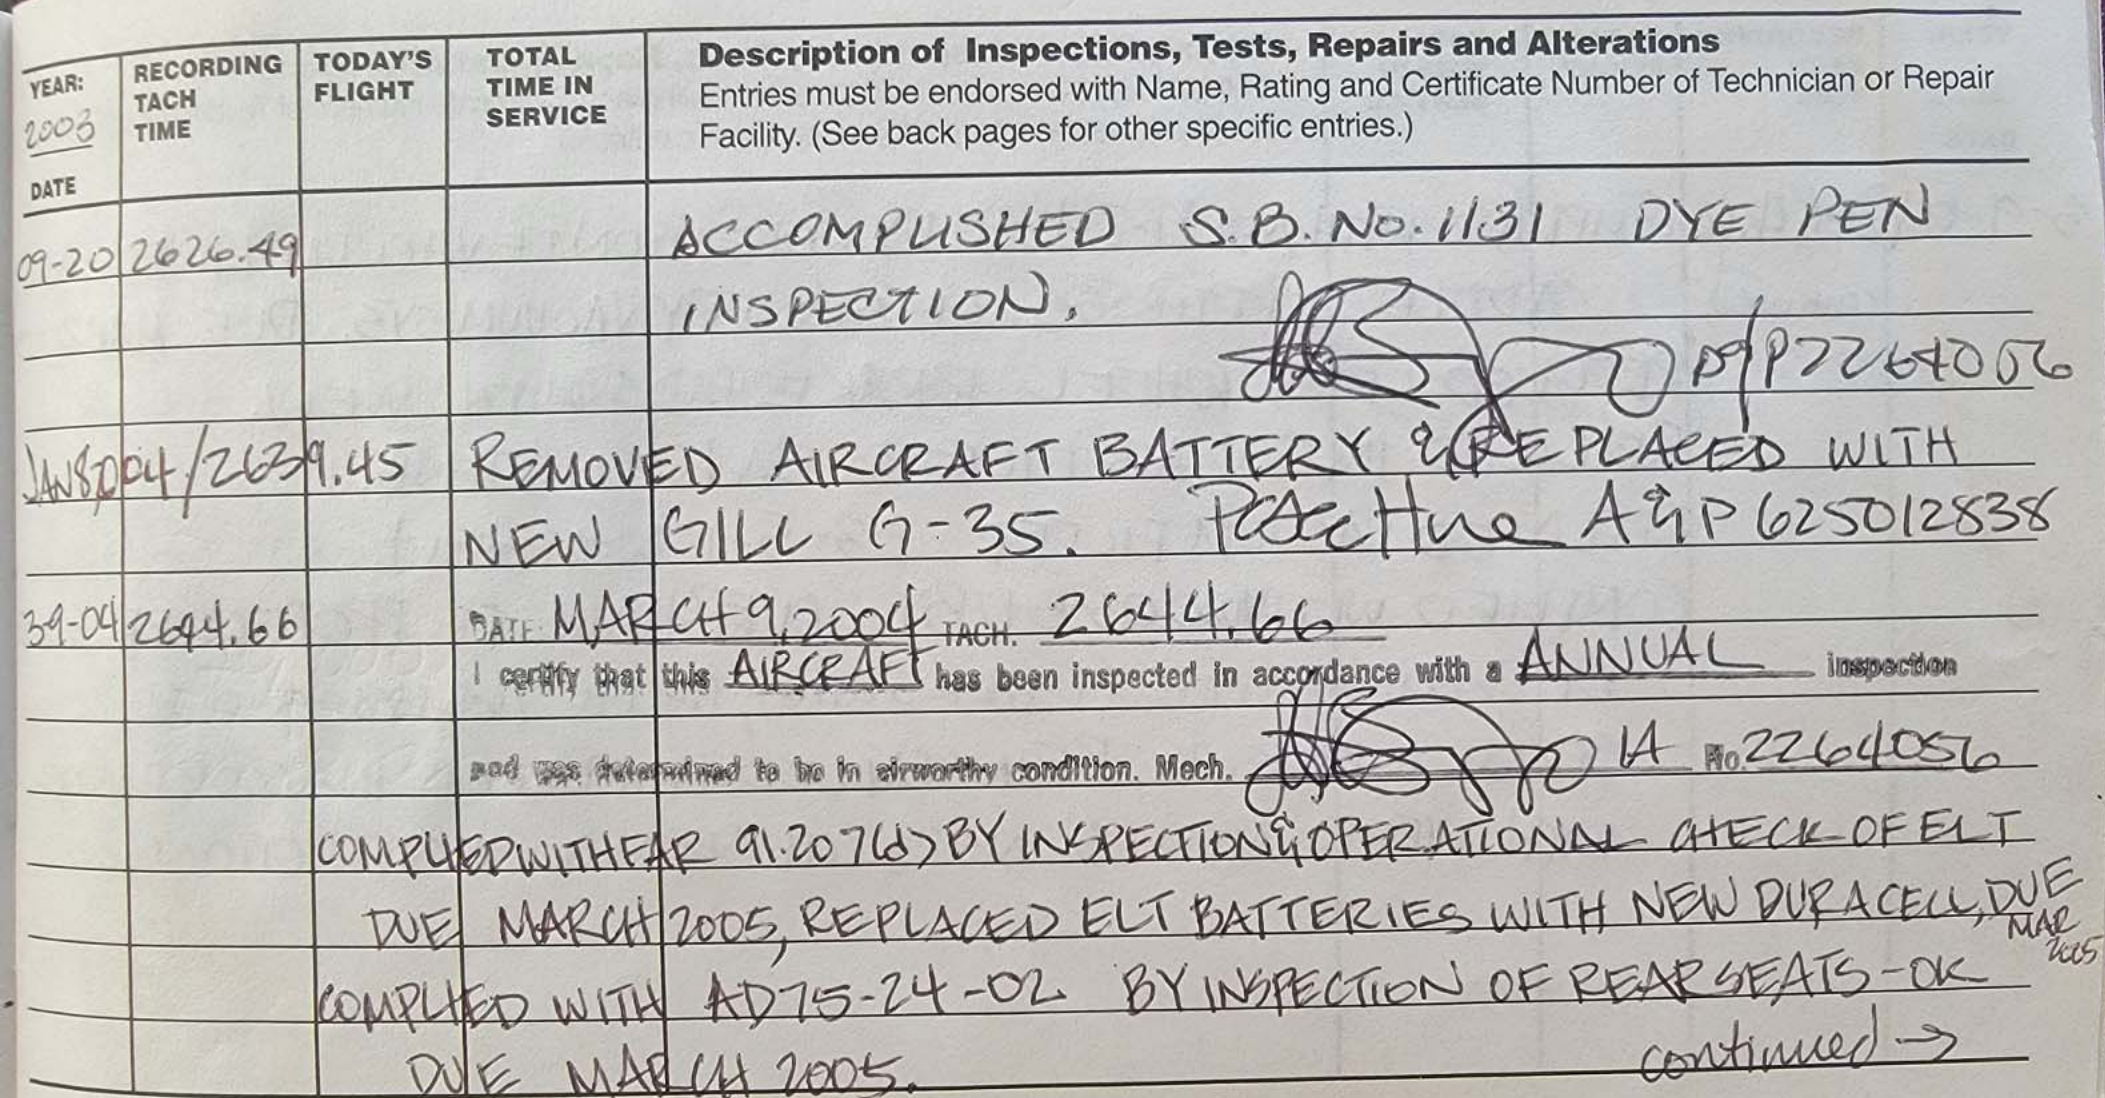 YEAR: 2003
DATE
RECORDING TACH TIME
TODAY'S FLIGHT
TOTAL TIME IN SERVICE
Description of Inspections, Tests, Repairs and Alterations
Entries must be endorsed with Name, Rating and Certificate Number of Technician or Repair
Facility. (See back pages for other specific entries.)
09-20 2626.49 ACCOMPLISHED S.B. No. 1131 DYE PEN
INSPECTION.
A/P 2264056
JAN 8, 04 / 2639.45 REMOVED AIRCRAFT BATTERY & REPLACED WITH
NEW GILL G-35. A&P 625012838
39-04 2644.66 DATE MARCH 9, 2004 TACH. 2644.66
I certify that this AIRCRAFT has been inspected in accordance with a ANNUAL inspection
and was determined to be in airworthy condition. Mech. IA No. 2264056
COMPLIED WITH FAR 91.207(d) BY INSPECTION & OPERATIONAL CHECK OF ELT
DUE MARCH 2005, REPLACED ELT BATTERIES WITH NEW DURACELL, DUE MAR 2005
COMPLIED WITH AD 75-24-02 BY INSPECTION OF REAR SEATS - OK
DUE MARCH 2005. continued →